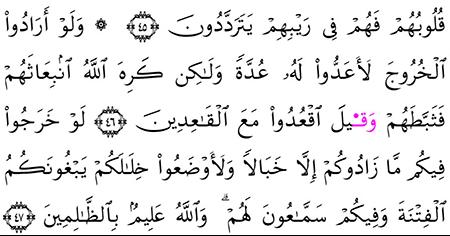 قُلُوبُهُمْ فَهُمْ فِى رَيْبِهِمْ يَتَرَدَّدُونَ ﴿٤٥﴾ ۞ وَلَوْ أَرَادُوا۟
ٱلْخُرُوجَ لَأَعَدُّوا۟ لَهُۥ عُدَّةً وَلَٰكِن كَرِهَ ٱللَّهُ ٱنۢبِعَاثَهُمْ
فَثَبَّطَهُمْ وَقِيلَ ٱقْعُدُوا۟ مَعَ ٱلْقَٰعِدِينَ ﴿٤٦﴾ لَوْ خَرَجُوا۟
فِيكُم مَّا زَادُوكُمْ إِلَّا خَبَالًا وَلَأَوْضَعُوا۟ خِلَٰلَكُمْ يَبْغُونَكُمُ
ٱلْفِتْنَةَ وَفِيكُمْ سَمَّٰعُونَ لَهُمْ ۗ وَٱللَّهُ عَلِيمٌۢ بِٱلظَّٰلِمِينَ ﴿٤٧﴾